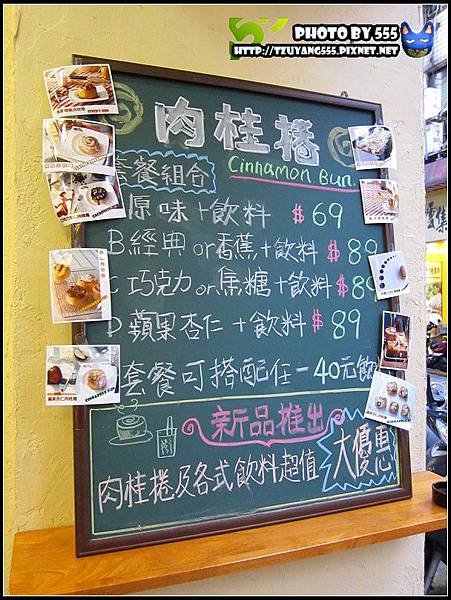 PHOTO BY 555
HTTP://TZUYANG555.PIXNET.NET
肉桂捲
Cinnamon Bun
套餐組合
原味+飲料 $69
B 經典 or 香蕉+飲料 $89
C 巧克力 or 焦糖+飲料 $89
D 蘋果杏仁+飲料 $89
套餐可搭配任一40元飲
新品推出
肉桂捲及各式飲料超值
大優惠